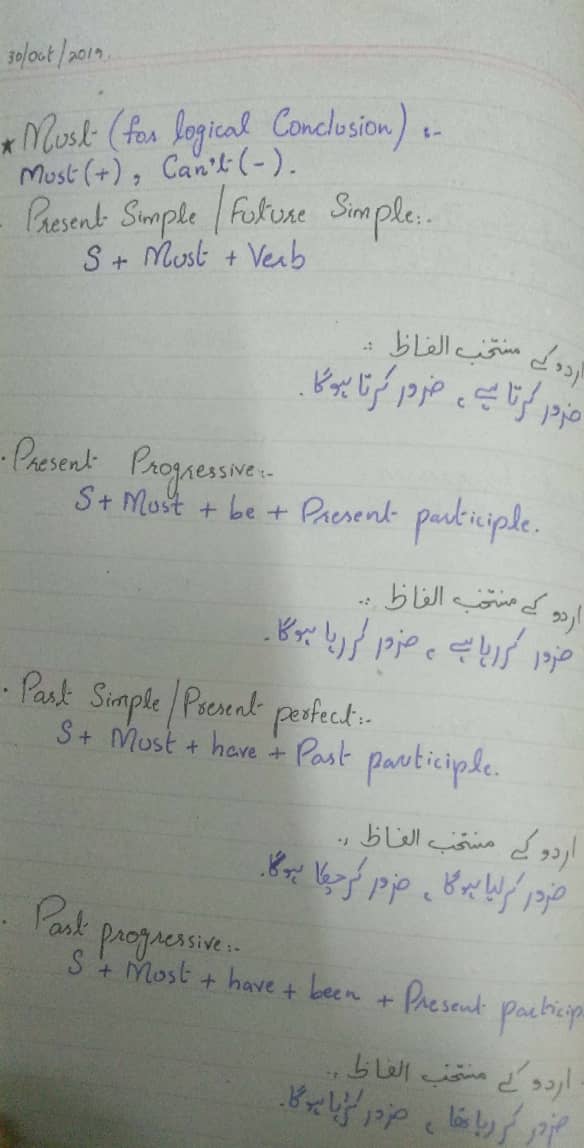 30/Oct/2019.
★ Must (for logical Conclusion) :-
Must (+), Can't (-).
Present Simple / Future Simple:-
S + Must + Verb
اردو کے منتخب الفاظ :-
ضرور کرتا ہے ، ضرور کرتا ہوگا۔
· Present Progressive:-
S + Must + be + Present participle.
اردو کے منتخب الفاظ :-
ضرور کررہا ہے ، ضرور کررہا ہوگا۔
· Past Simple / Present perfect:-
S + Must + have + Past participle.
اردو کے منتخب الفاظ :-
ضرور کرلیا ہوگا ، ضرور کرچکا ہوگا۔
· Past progressive:-
S + Must + have + been + Present particip
اردو کے منتخب الفاظ :-
ضرور کررہا تھا ، ضرور کررہا ہوگا۔